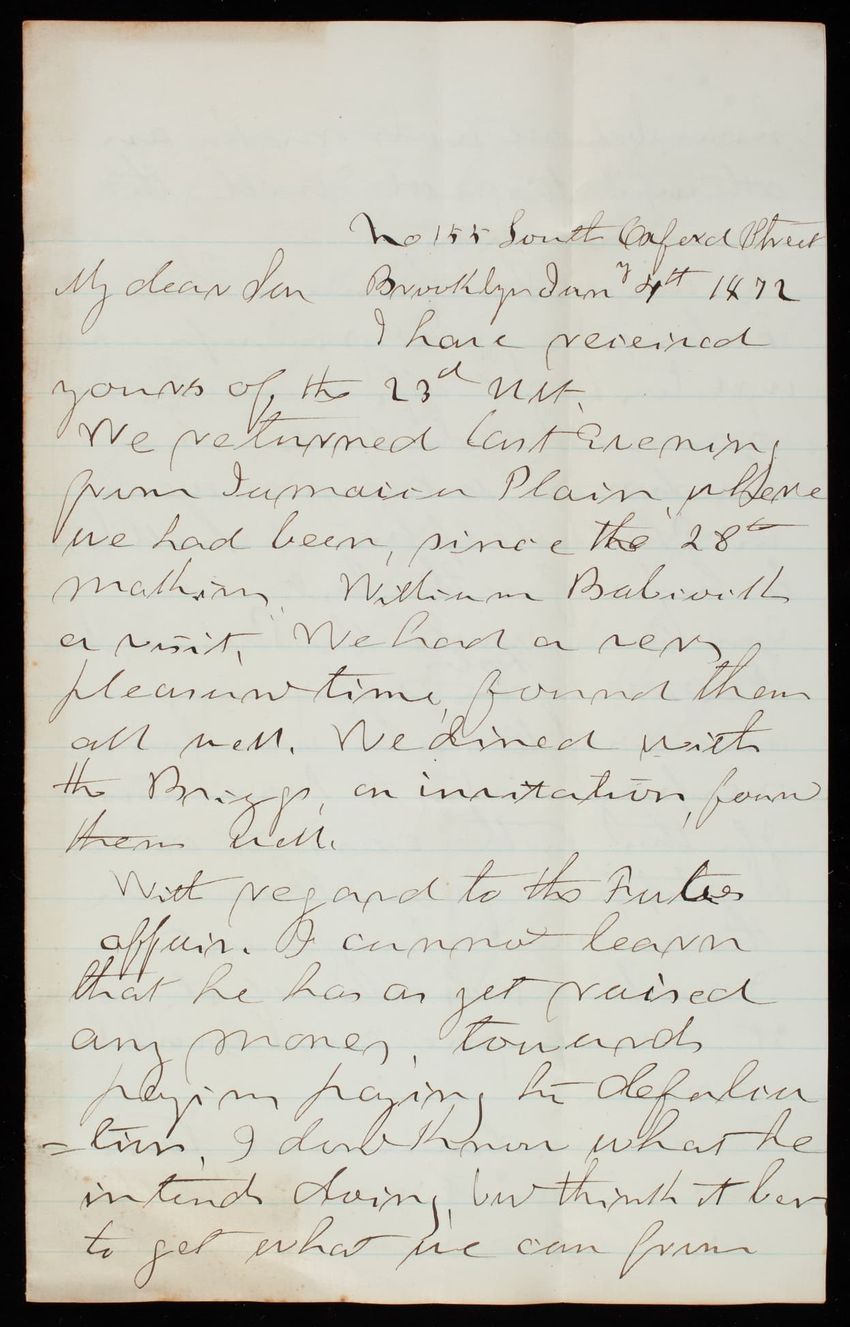 No 155 South Oxford Street
My dear Son Brooklyn Jany 4th 1872
I have received
yours of the 23d Ult.
We returned last Evening
from Jamaica Plain, where
we had been, since the 28th
making William
a visit, We had a very
pleasant time, found them
all well. We dined with
the Briggs, on invitation, foun
them well.
With regard to the
affair. I cannot learn
that he has as yet raised
any money, towards
paying paying his defalca
=tion, I dont know what he
intends doing, but think it bes
to get what we can from